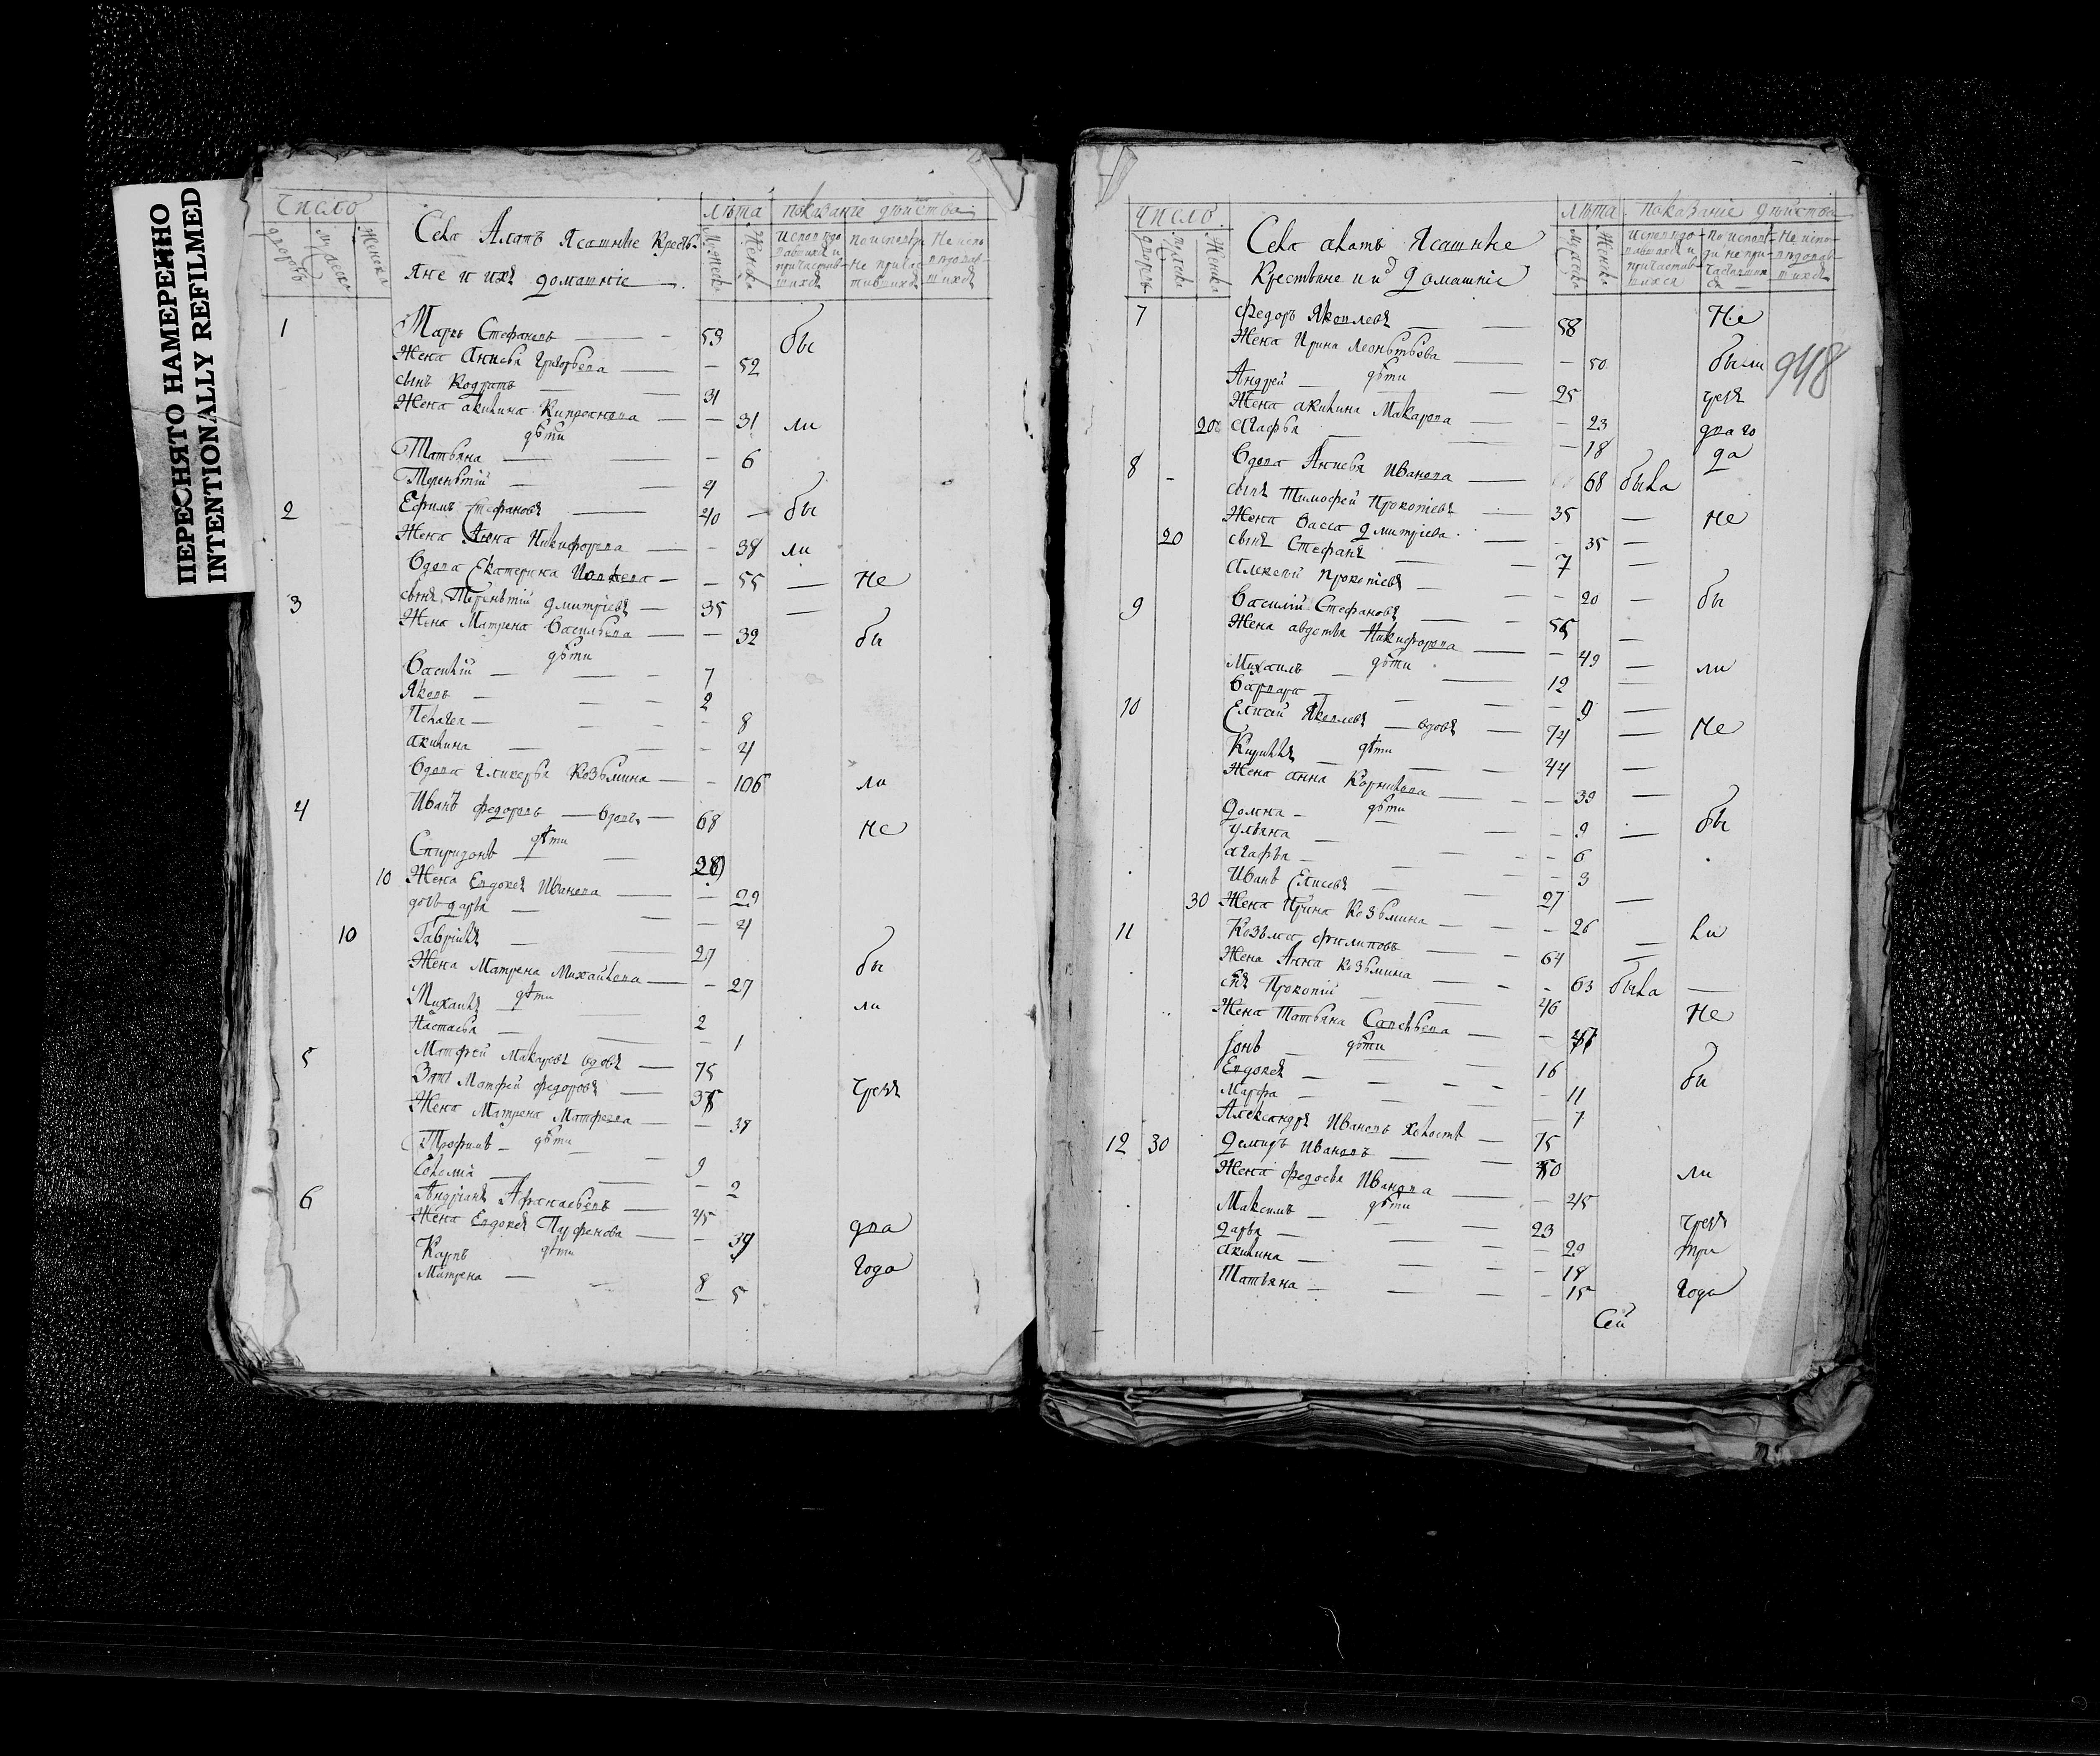 ПЕРЕСНЯТО НАМЕРЕННО
INTENTIONALLY REFILMED
Число
Лѣта показаніе дѣйства
Села Алатъ Ясашные Крестъ-
яне и ихъ домашніе
1 Маркъ Стефановъ 53 бы
Жена Анисья Григорьева 52
сынъ Кодратъ 31
Жена акилина Кипрʼянова 31 ли
дѣти
Татьяна 6
Терентій 4
2 Ефимъ Стефановъ 40 бы
Жена Анна Никифорова 38 ли
Вдова Екатерина 55 Не
3 сынъ Терентій Дмитріевъ 35
Жена Матрена Васильева 32 бы
дѣти
Василій 7
Яковъ 2
Пелагея 8
акилина 4
Вдова Гликерья Козьмина 106 ли
4 Иванъ федоровъ вдовъ 68 не
дѣти
Спиридонъ 28
10 Жена Евдокея Иванова 29
дочь дарья 4
10 Гаврилъ 27
Жена Матрена Михайлова 27 бы
Михаилъ дѣти 2 ли
Настасья 1
5 Матфей Макаровъ вдовъ 75
Зять Матфей федоровъ чрезъ
Жена Матрена Матфеева
Трофимъ дѣти 9
Соломія 2
6 Андріянъ Афанасьевъ 45
Жена Евдокея Парфенова 39 два
Карпъ дѣти 8 года
Матрена 5
Число
Лѣта показаніе дѣйства
Села алатъ Ясашные
Крестьяне и их домашніе
948
7 федоръ Яковлевъ 58 Не
Жена Ирина Леонтьева 50 были
Андрей дѣти 25 чрезъ
Жена акилина Макарова 23 два го
20 агафья 18 да
8 Вдова Анисья Иванова 68 была
сынъ Тимофей Прокопіевъ 35 Не
Жена Васса Дмитріева 35
20 сынъ Стефанъ 7
алексей прокопіевъ 20 бы
9 Василій Стефановъ 55
Жена авдотья Никифорова 49 ли
Михаилъ дѣти 12
Варвара 9
10 Елисей Яковлевъ вдовъ 74 Не
Кирилъ дѣти 44
Жена анна Корнилова 39
Домна дѣти 9 бы
ульяна 6
агафья 3
Иванъ Елисевъ 27
30 Жена Ирина Козьмина 26 ли
11 Козьма филиповъ 64
Жена Анна Козьмина 63 была
сынъ Прокопій 46 Не
Жена Татьяна Савельева
Іонъ дѣти 16
Евдокея 11 бы
Марфа 7
Александръ Ивановъ холостъ 75
12 30 Демидъ Ивановъ 50 ли
Жена федосья Иванова 45
Максимъ дѣти 23 чрезъ
дарья 29 три
акилина 18
Татьяна 15 года
Сей